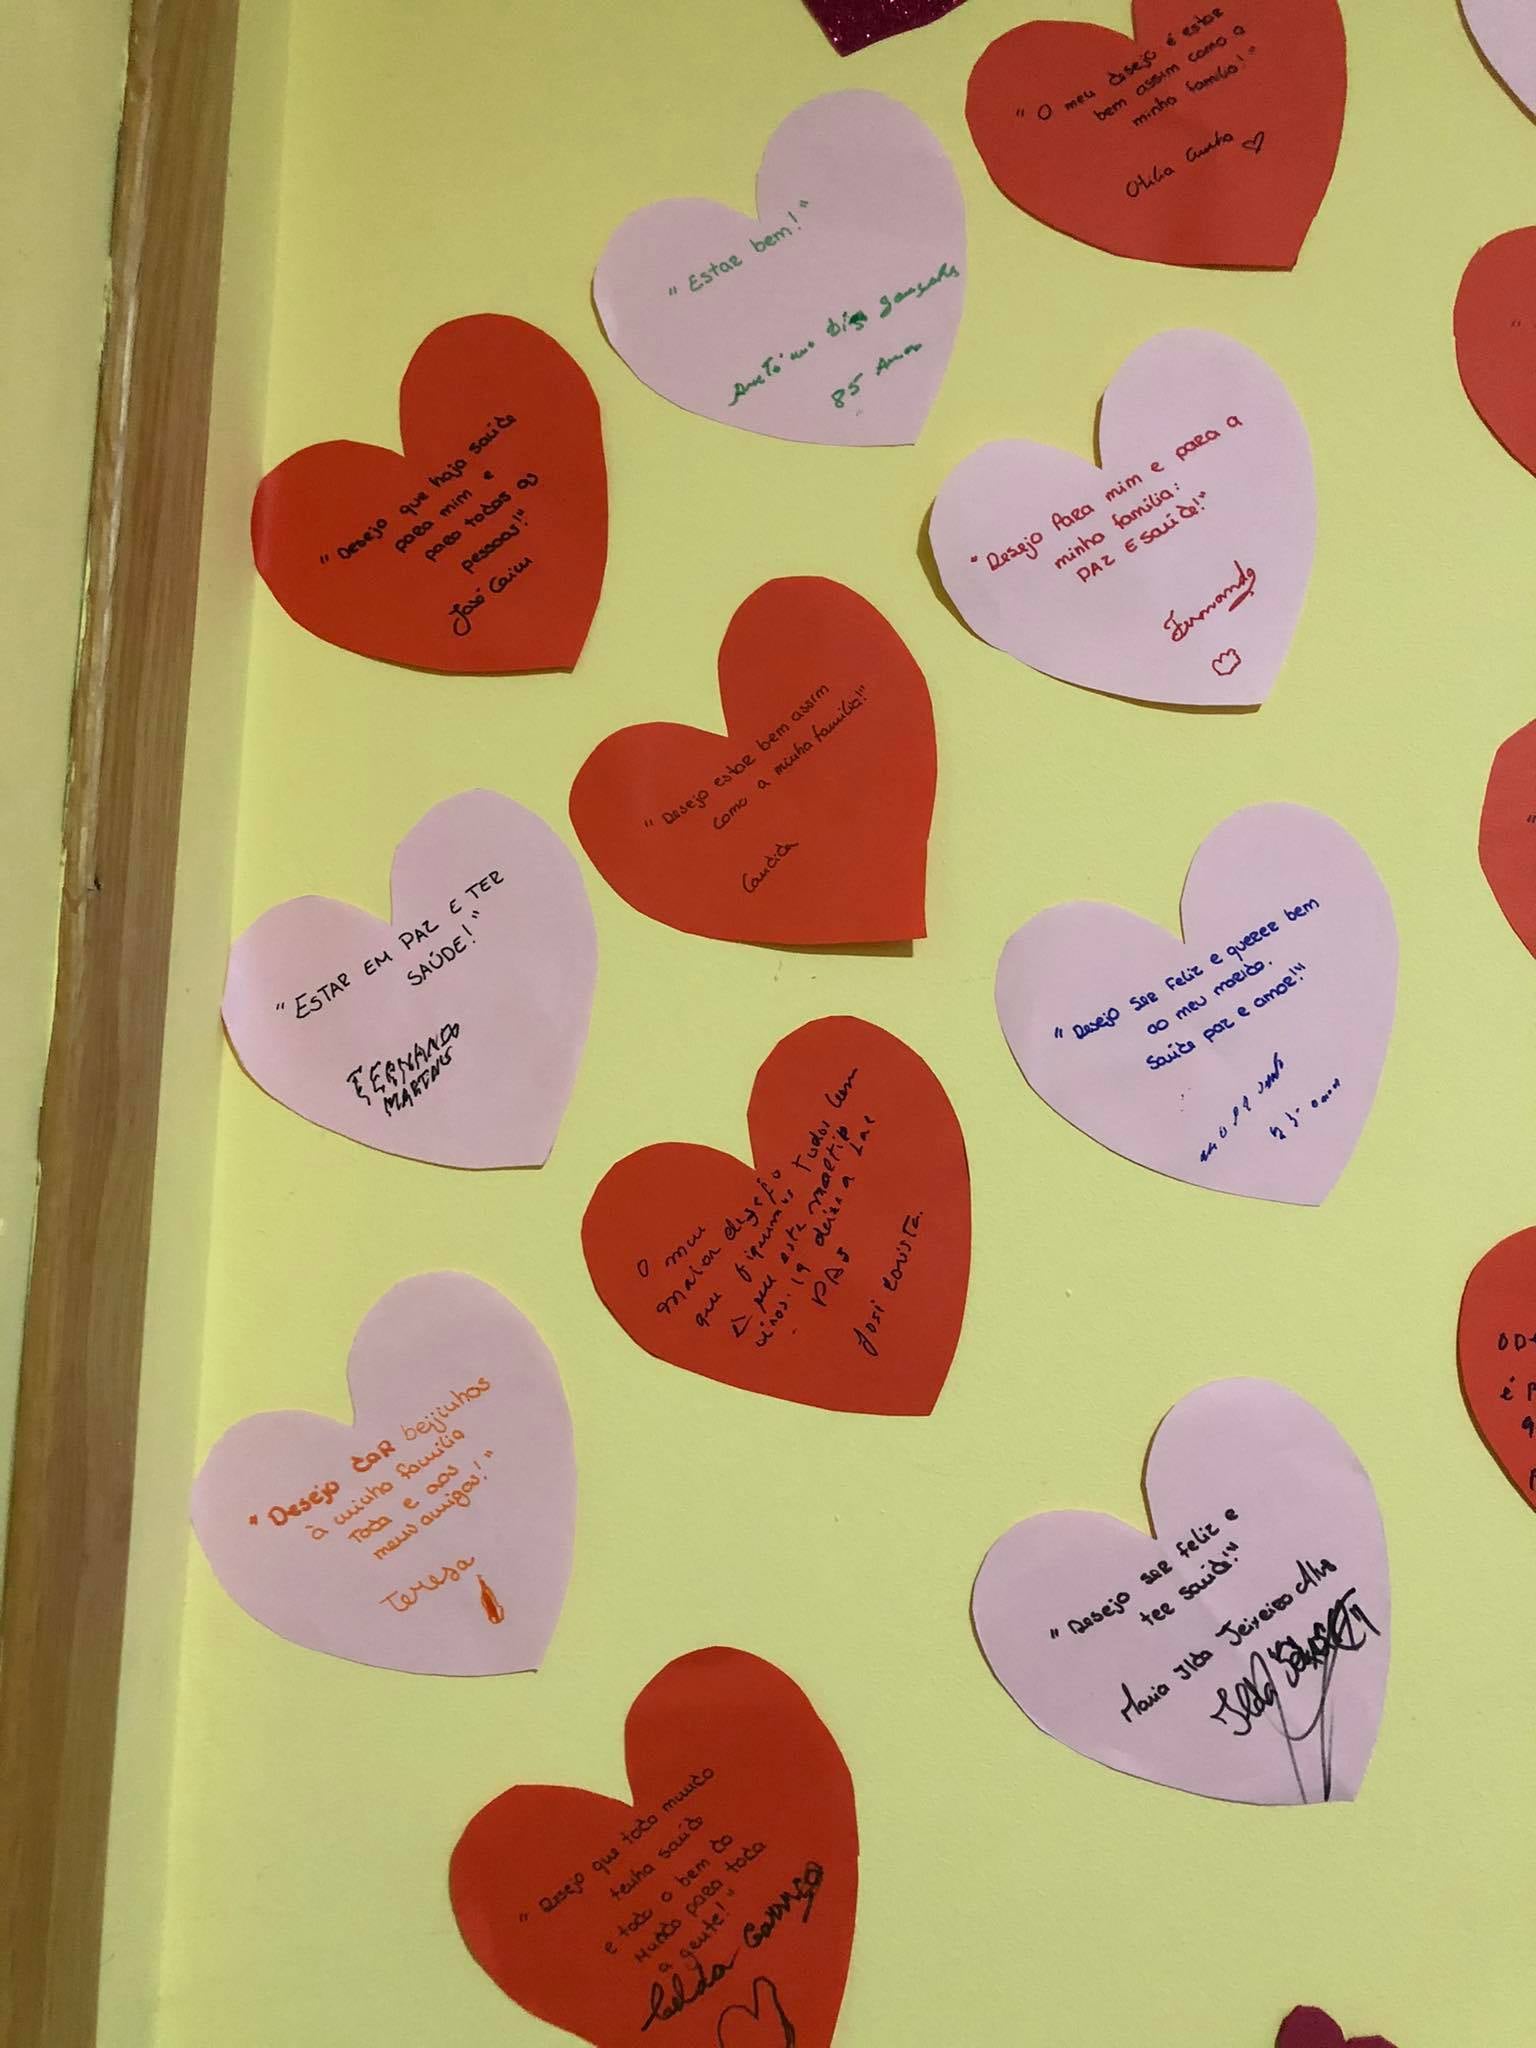 "O meu desejo é estar
bem assim como a
minha família!"
Otília Cunha
"Estar bem!"
85 Anos
"Desejo que haja saúde
para mim e
para todas as
pessoas!"
José
"Desejo Para mim e para a
minha família:
PAZ E saúde!"
Fernanda
"Desejo estar bem assim
como a minha família!"
Candida
"ESTAR EM PAZ E TER
SAÚDE!"
FERNANDO
MARTINS
"Desejo ser feliz e querer bem
ao meu marido.
Saúde paz e amor!"
O meu
maior desejo
que fiquemos tudos bem
José
"Desejo dar beijinhos
à minha família
toda e aos
meus amigos!"
Teresa
"Desejo ser feliz e
ter saúde!"
Maria Ilda Teixeira Alves
Ilda
"Desejo que todo mundo
tenha saúde
e todo o bem do
Mundo para toda
a gente!"